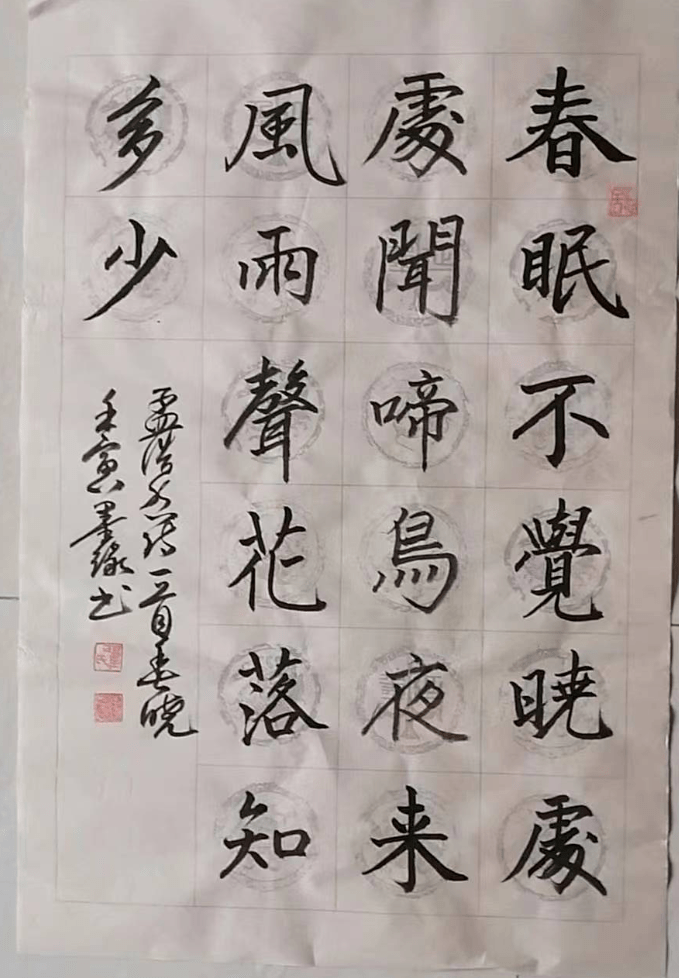 春眠不覺暁處
處聞啼鳥夜来
風雨聲花落知
多少
孟浩然诗一首春晓
壬寅墨缘书